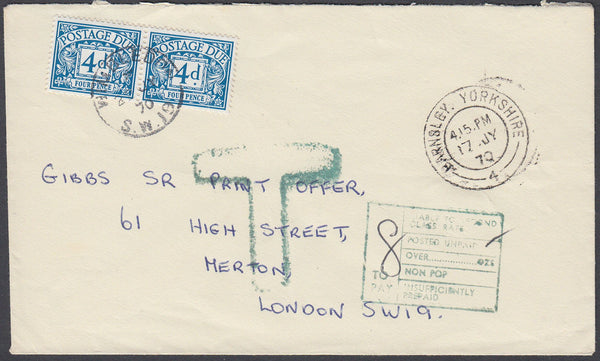 POSTAGE DUE POSTAGE DUE
4d. 4d.
FOUR PENCE FOUR PENCE
BARNSLEY. YORKSHIRE
4.15.PM
17 JY
70
4
T
GIBBS SR PRINT OFFER,
61 HIGH STREET,
MERTON
LONDON SW19.
8
TO
PAY
LIABLE TO SECOND
CLASS RATE
POSTED UNPAID
OVER......OZS
NON POP
INSUFFICIENTLY
PREPAID